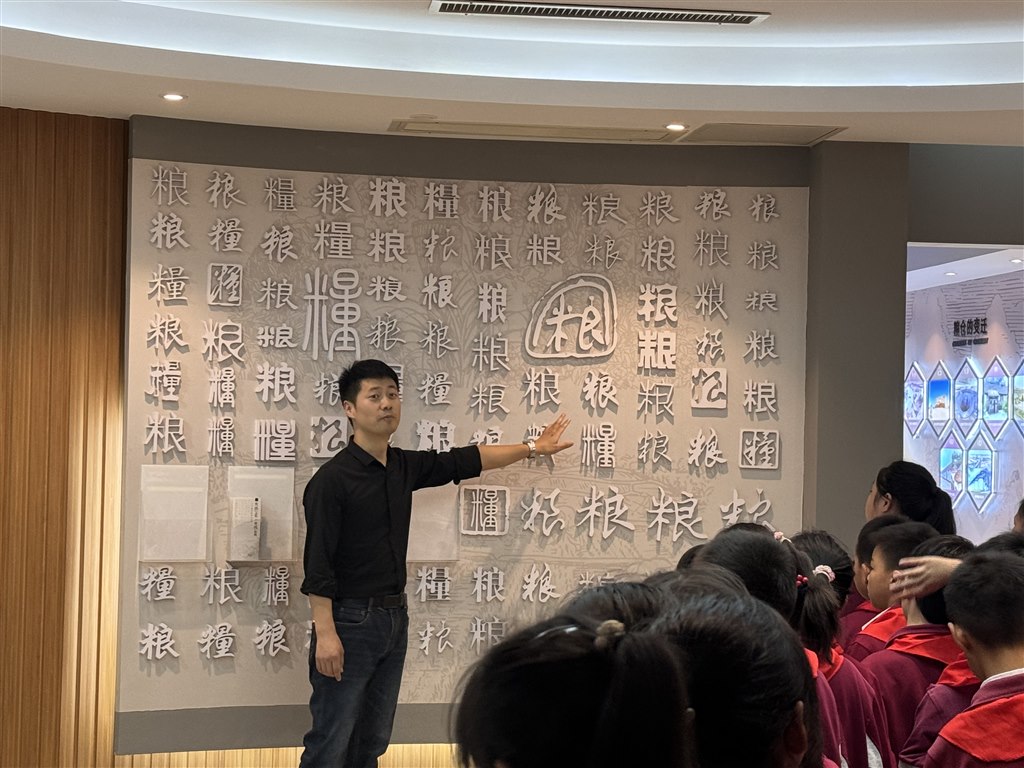 粮 粮 糧 粮 粮 糧 粮 粮 粮 粮 粮 粮
粮 糧 粮 糧 粮 粮 粮 粮 粮 粮 粮 粮
糧 糧 粮 糧 粮 粮 粮 粮 粮 粮 粮
粮 粮 粮 粮 粮 粮 粮 粮 粮
糧 糧 粮 粮 糧 粮 粮 粮 粮 粮 粮
粮 糧 糧 粮 粮 粮 粮 糧 粮 粮 糧
糧 粮 粮 粮 粮
糧 粮 糧 糧 粮 粮 粮
粮 糧 粮 粮 粮
粮仓的变迁